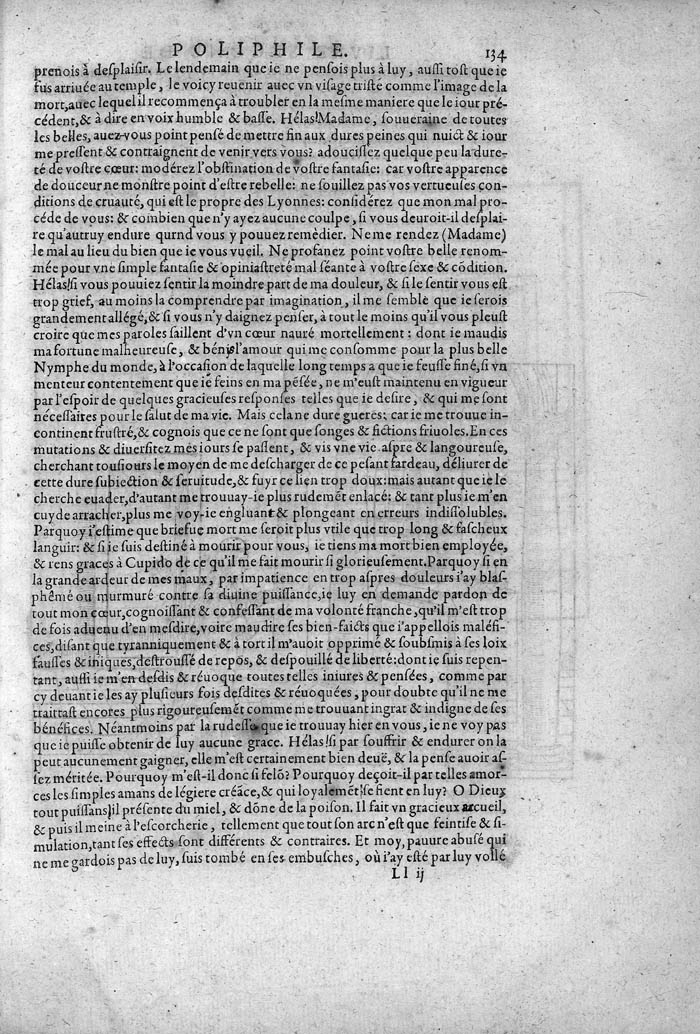 POLIPHILE. 134
prenois à desplaisir. Le lendemain que ie ne pensois plus à luy, aussi tost que ie
fus arriuée au temple, le voicy reuenir auec vn visage triste comme l'image de la
mort,auec lequel il recommença à troubler en la mesme maniere que le iour pré-
cédent,& à dire en voix humble & basse. Hélas!Madame, souueraine de toutes
les belles, auez-vous point pensé de mettre fin aux dures peines qui nuict & iour
me pressent & contraignent de venir vers vous? adoucissez quelque peu la dure-
té de vostre cœur: modérez l'obstination de vostre fantasie: car vostre apparence
de douceur ne monstre point d'estre rebelle: ne souillez pas vos vertueuses con-
ditions de cruauté, qui est le propre des Lyonnes: considérez que mon mal pro-
céde de vous: & combien que n'y ayez aucune coulpe, si vous deuroit-il desplai-
re qu'autruy endure qurnd vous y pouuez remèdier. Ne me rendez (Madame)
le mal au lieu du bien que ie vous vueil. Ne profanez point vostre belle renom-
mée pour vne simple fantasie & opiniastreté mal séante à vostre sexe & cõdition.
Hélas!si vous pouuiez sentir la moindre part de ma douleur, & si le sentir vous est
trop grief, au moins la comprendre par imagination, il me semble que ie serois
grandement allégé,& si vous n'y daignez penser, à tout le moins qu'il vous pleust
croire que mes paroles saillent d'vn cœur nauré mortellement: dont ie maudis
ma fortune malheureuse, & bénis l'amour qui me consomme pour la plus belle
Nymphe du monde, à l'occasion de laquelle long temps a que ie feusse finé,si vn
menteur contentement que ie feins en ma pẽsée, ne m'eust maintenu en vigueur
par l'espoir de quelques gracieuses responses telles que ie desire, & qui me sont
nécessaires pour le salut de ma vie. Mais cela ne dure gueres: car ie me trouue in-
continent frustré,& cognois que ce ne sont que songes & fictions friuoles.En ces
mutations & diuersitez mes iours se passent, & vis vne vie aspre & langoureuse,
cherchant tousiours le moyen de me descharger de ce pesant fardeau, déliurer de
cette dure subiection & seruitude,& fuyr ce lien trop doux:mais autant que ie le
cherche euader,d'autant me trouuay-ie plus rudemẽt enlacé: & tant plus ie m'en
cuyde arracher,plus me voy-ie engluant & plongeant en erreurs indissolubles.
Parquoy i'estime que briefue mort me seroit plus vtile que trop long & fascheux
languir: & si ie suis destiné à mourir pour vous, ie tiens ma mort bien employée,
& rens graces à Cupido de ce qu'il me fait mourir si glorieusement.Parquoy si en
la grande ardeur de mes maux, par impatience en trop aspres douleurs i'ay blas-
phêmé ou murmuré contre sa diuine puissance,ie luy en demande pardon de
tout mon cœur,cognoissant & confessant de ma volonté franche,qu'il m'est trop
de fois aduenu d'en mesdire,voire maudire ses bien-faicts que i'appellois maléfi-
ces,disant que tyranniquement & à tort il m'auoit opprimé & soubsmis à ses loix
fausses & iniques,destroussé de repos, & despouillé de liberté:dont ie suis repen-
tant, aussi ie m'en desdis & réuoque toutes telles iniures & pensées, comme par
cy deuant ie les ay plusieurs fois desdites & réuoquées, pour doubte qu'il ne me
traittast encores plus rigoureusemẽt comme me trouuant ingrat & indigne de ses
bénéfices. Néantmoins par la rudesse que ie trouuay hier en vous, ie ne voy pas
que ie puisse obtenir de luy aucune grace. Hélas!si par souffrir & endurer on la
peut aucunement gaigner, elle m'est certainement bien deuë, & la pense auoir as-
sez méritée. Pourquoy m'est-il donc si felõ? Pourquoy deçoit-il par telles amor-
ces les simples amans de légiere créãce,& qui loyalemẽt se fient en luy? O Dieux
tout puissans!il présente du miel, & dõne de la poison. Il fait vn gracieux arcueil,
& puis il meine à l'escorcherie, tellement que tout son arc n'est que feintise & si-
mulation,tant ses effects sont différents & contraires. Et moy, pauure abusé qui
ne me gardois pas de luy, suis tombé en ses embusches, où i'ay esté par luy vollé
Ll ij